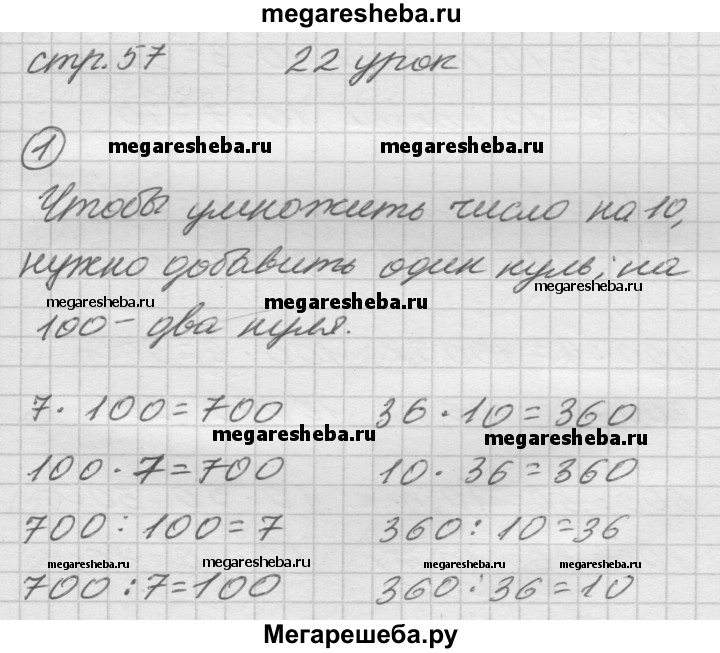 megaresheba.ru
стр. 57 22 урок
1 megaresheba.ru megaresheba.ru
Чтобы умножить число на 10,
нужно добавить один нуль; на
megaresheba.ru megaresheba.ru megaresheba.ru
100 - два нуля.
7 · 100 = 700 36 · 10 = 360
megaresheba.ru megaresheba.ru
100 · 7 = 700 10 · 36 = 360
700 : 100 = 7 360 : 10 = 36
megaresheba.ru megaresheba.ru megaresheba.ru megaresheba.ru
700 : 7 = 100 360 : 36 = 10
Мегарешеба.ру